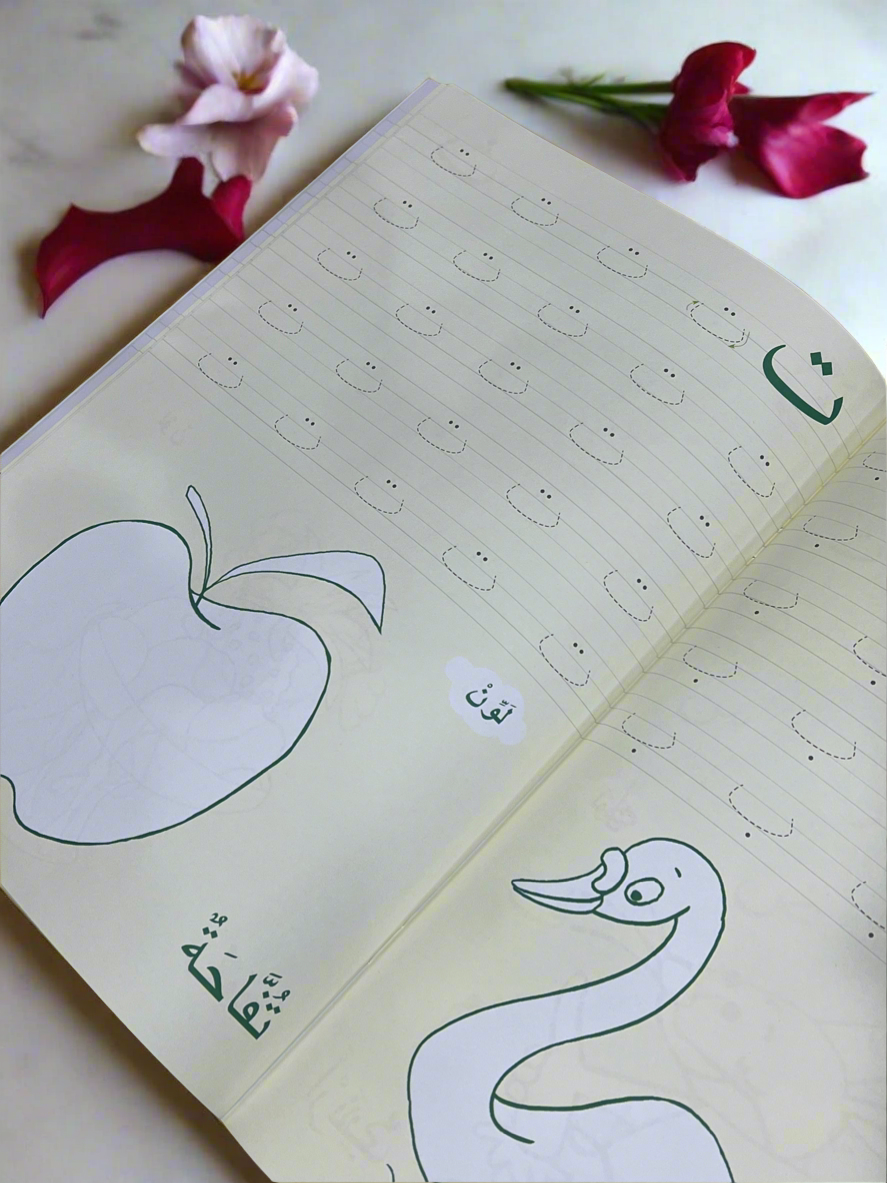 ت ت ت ت ت
ت ت ت ت ت
ت ت ت ت ت
ت ت ت ت ت
ت ت ت ت ت
لَوِّنْ
تُفَّاحَةٌ
ب
ب
ب ب
ب ب
ب ب ب